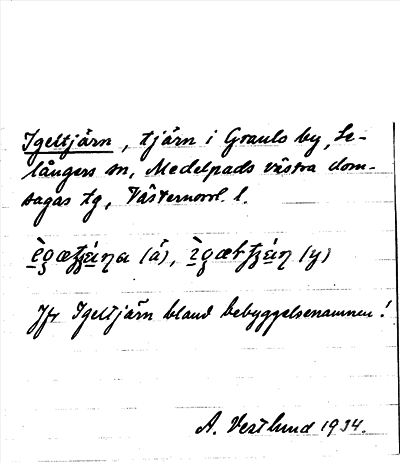 Igeltjärn, tjärn i Grauls by, Se-
långers sn, Medelpads västra dom-
sagas tg, Västernorrl. l.
(ä), (y)
Jfr Igeltjärn bland bebyggelsenamnen!
A. Vestlund 1934.